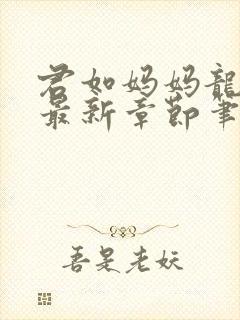 君如妈妈龍
最新章节笔
吾是老妖